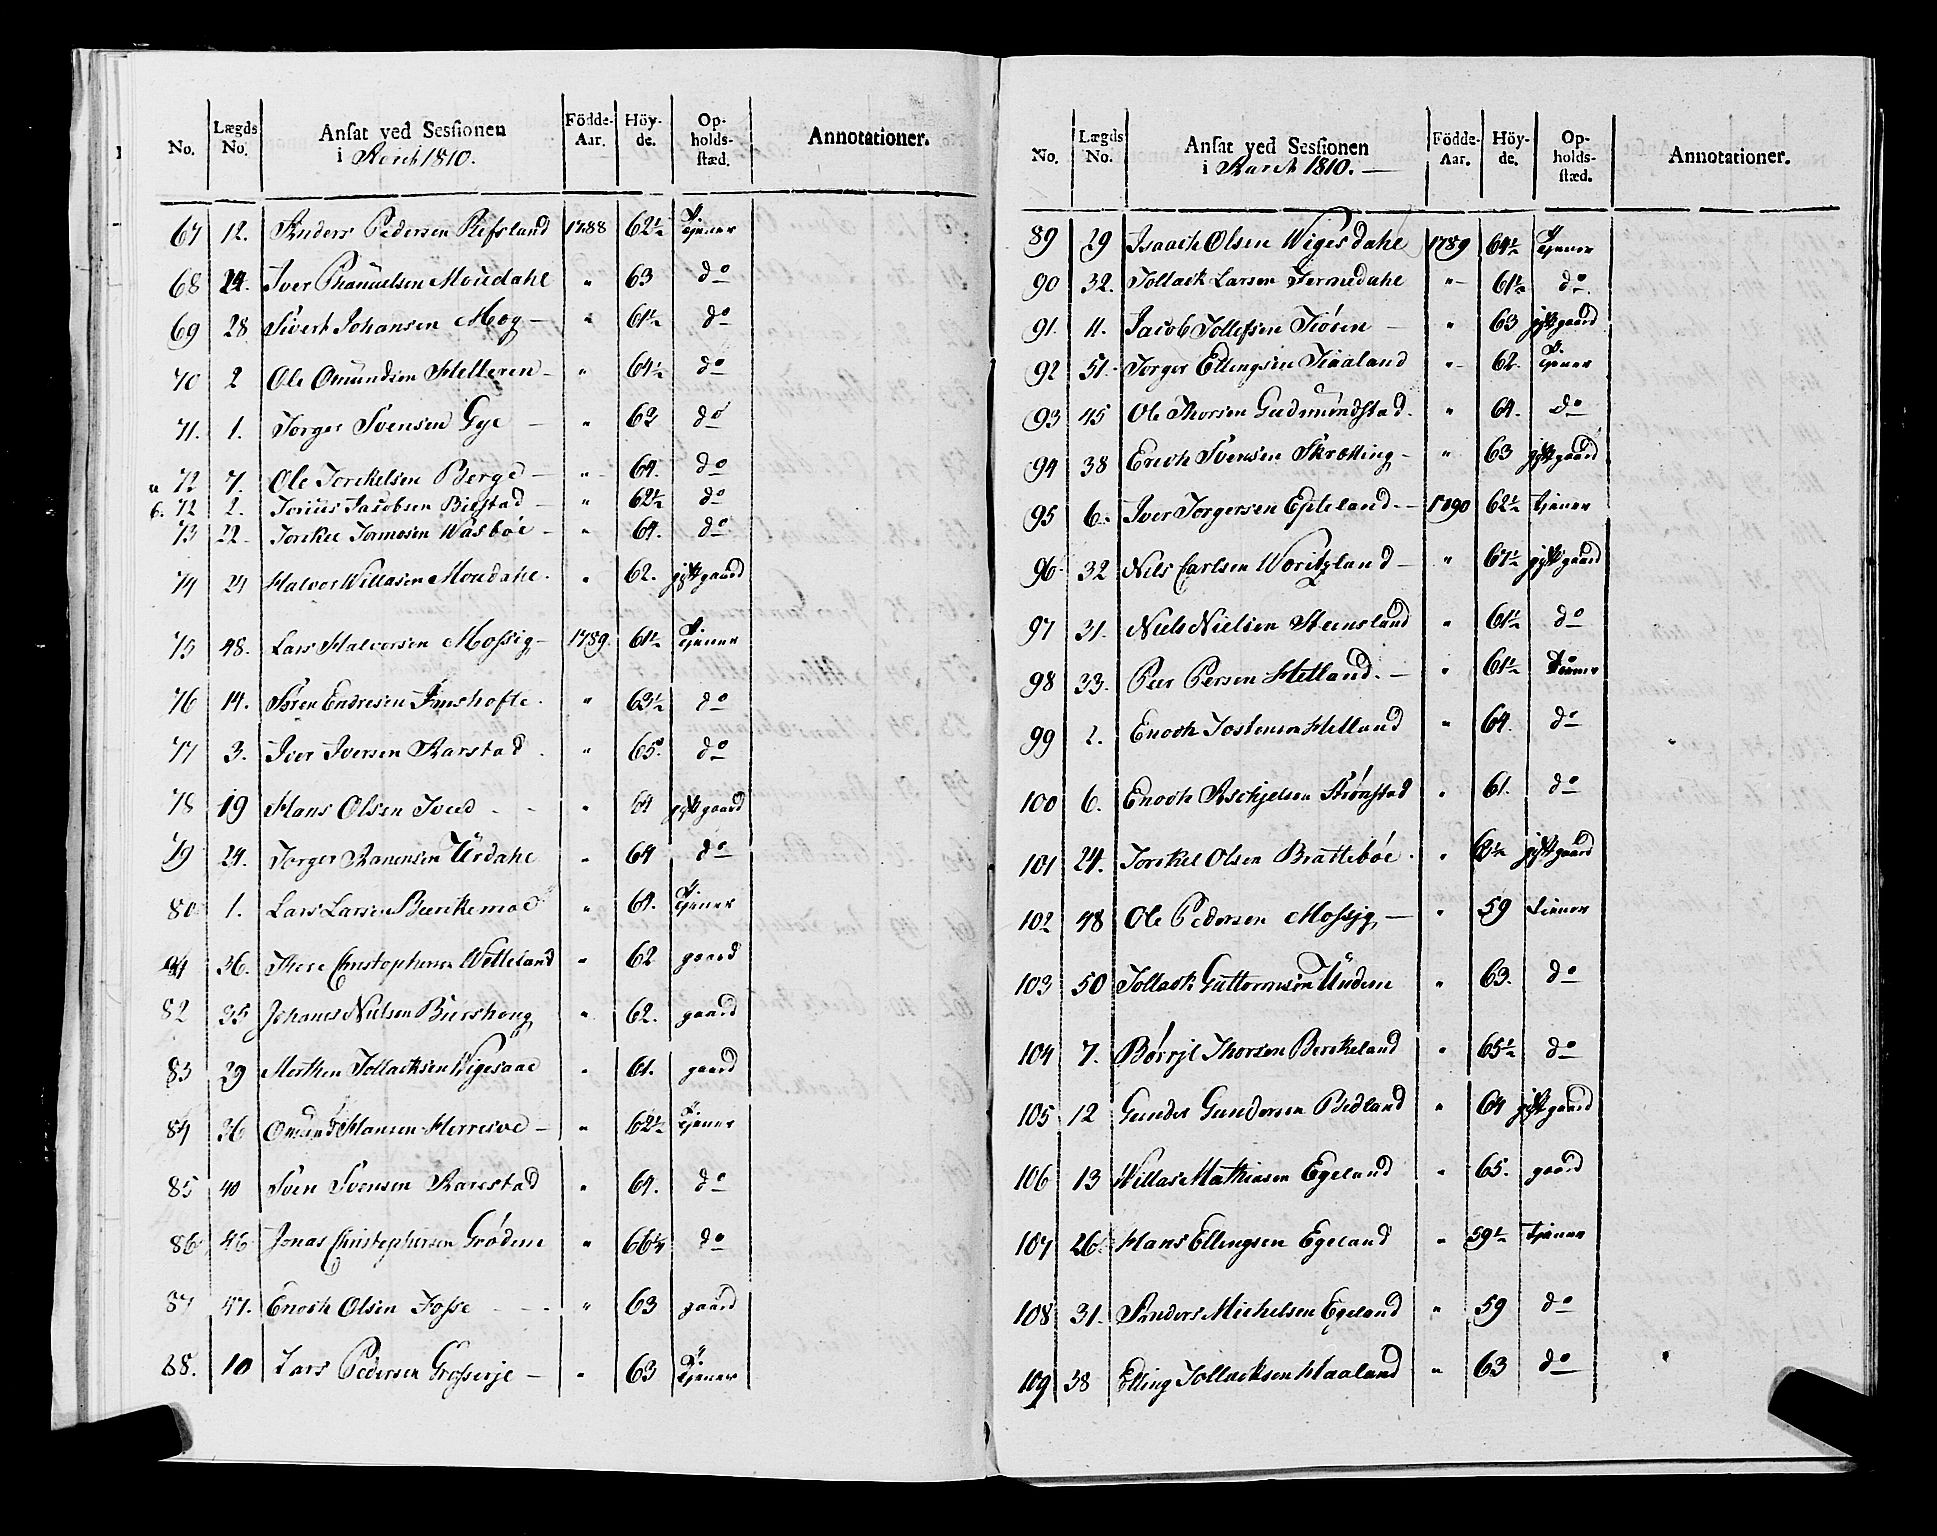 No. Lægds No. Ansat ved Sessionen i March 1810. Födde-Aar. Höy-de. Op-holds-stæd. Annotationer.
67 12. Anders Pedersen Refsland 1788 62½ Tjener
68 24. Iver Samuelsen Moudahl " 63 do
69 28 Sivert Johansen Mog " 61½ do
70 2 Ole Omundsen Helleren " 64½ do
71. 1. Torger Svensen Gye " 63 do
a 72 7. Ole Torkelsen Berge " 64. do
b. 72 2. Jonas Jacobsen Birstad " 62½ do
73 22 Torkel Tormosen Wasbøe " 64. do
74 24 Halvor Willasen Moudahl. " 62. gift gaard
75 48. Lars Halvorsen Mossig 1789. 61½ Tjener
76 14. Søren Endresen Imshofte. " 63½ do
77 3. Iver Iversen Rarstad. " 65. do
78 19 Hans Olsen Tved " 64 gift gaard
79 24. Torger Urdahl " 64 do
80 1. Lars Larsen Birkemoe " 64. Tjener
81 36. Thore Christophersen Wetteland " 62 gaard
82 35 Johanes Nielsen Biershoug " 62. gaard
83 29 Morthen Tollacksen Wigesaae " 61. gaard
84 36 Omund Hansen Herresve " 62½ Tjener
85 40 Sven Svensen Rarestad " 64. do
86 46 Jonas Christophersen Grødem " 66¼ do
87 47. Enoch Olsen Fosse " 63 gaard
88. 10 Lars Pedersen Grosserje " 63 Tjener
No. Lægds No. Ansat ved Sessionen i March 1810. Födde-Aar. Höy-de. Op-holds-stæd. Annotationer.
89 29 Isaach Olsen Wigesdahl 1789 64½ Tjener
90 32. Tollack Larsen " 61½ do
91. 11. Jacob Tollefsen Tiøsen " 63 gift gaard
92 51. Torger Ellingsen Tiaaland " 62. Tjener
93 45 Ole Thorsen Gudmundstad. " 64. do
94 38 Erich Svensen Skrætting " 63 gift gaard
95 6. Iver Torgersen Epteland. 1790 62½ Tjener
96 32 Nils Carlsen Woritzland " 67½ gift gaard
97 31. Niels Nielsen Steensland " 61½ do
98 33. Peer Persen Hetland. " 61½ Tienner
99 2. Enoch Jostensen Helland " 64. do
100 6. Enoch Aschjelsen Strømstad " 61. do
101 24. Torckel Olsen Brattebøe. " gift gaard
102 48 Ole Pedersen Mossig " 59 Tienner
103 50 Tollack Guttormsen Undem " 63. do
104 7. Børrjl Thorsen Berckeland " 65½ do
105 12 Gunder Gundersen Bedland " 64 gift gaard
106 13 Willas Mathiasen Egeland " 65. gaard
107 26. Hans Ellingsen Egeland " 59½ Tjener
108 31. Anders Michelsen Egeland " 59 do
109 38 Elling Tollacksen Haaland " 63 do